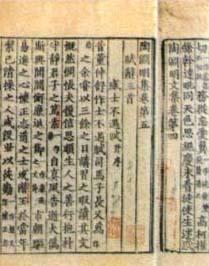 高柯擢
幹遠眺同天色思絕慶未看徒使生迷惑
陶淵明文集卷第四
陶淵明集卷第五
賦辭三首
感士不遇賦并序
昔董仲舒作士不遇賦司馬子長又爲
之余嘗以三餘之日講習之暇讀其文
慨然惆悵夫履信思順生人之善行抱朴
守靜君子之篤素自真風告逝大僞
斯興閭閻懈廉退之節市朝驅
易進之心懷正志道之士或潛玉於當年
潔己清操之人或沒世以徒